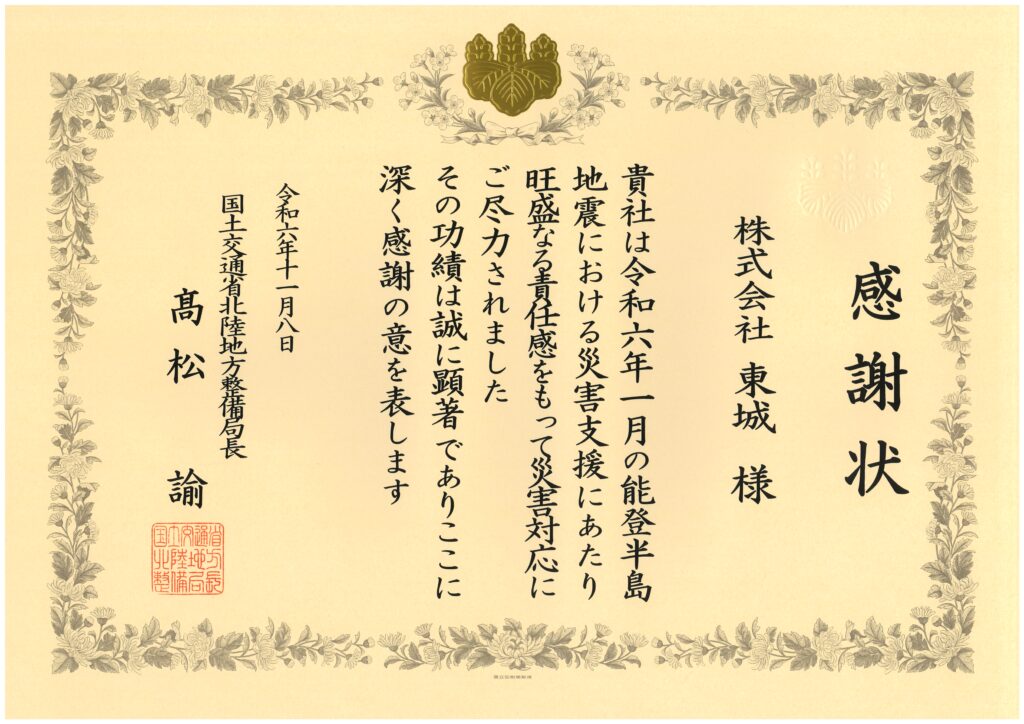 感謝状
株式会社 東城 様
貴社は令和六年一月の能登半島
地震における災害支援にあたり
旺盛なる責任感をもって災害対応に
ご尽力されました
その功績は誠に顕著でありここに
深く感謝の意を表します
令和六年十一月八日
国土交通省北陸地方整備局長
髙松 諭